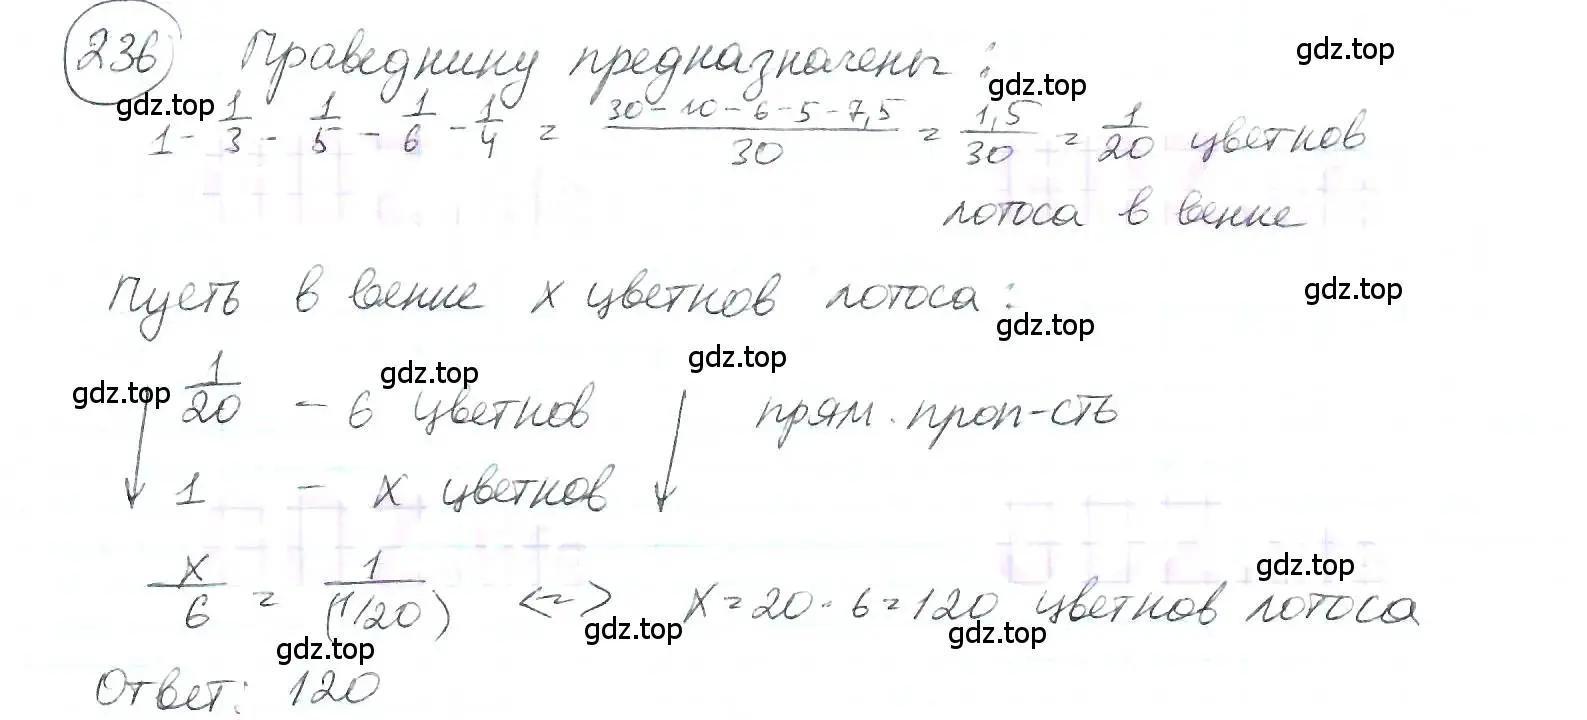 236 Праведнику предназначены:
1 - 1/3 - 1/5 - 1/6 - 1/4 = (30-10-6-5-7,5)/30 = 1,5/30 = 1/20 цветков
лотоса в венке
Пусть в венке x цветков лотоса:
1/20 - 6 цветков прям. проп-сть
1 - x цветков
x/6 = 1/(1/20) <=> x = 20 · 6 = 120 цветков лотоса
Ответ: 120
gdz.top
gdz.top
gdz.top
gdz.top
gdz.top
gdz.top
gdz.top
gdz.top
gdz.top
gdz.top
gdz.top
gdz.top